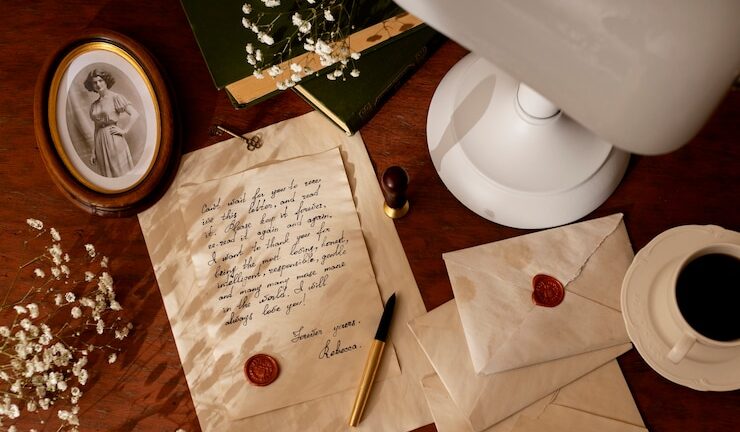 Can't wait for you to rece-
ive this letter, and read
it. Please keep it forever,
re-read it again and again.
I want to thank you for
being the most loving, honest,
intelligent, responsible, gentle
and many many more mane
in the world. I will
always love you!
Forever yours,
Rebecca.